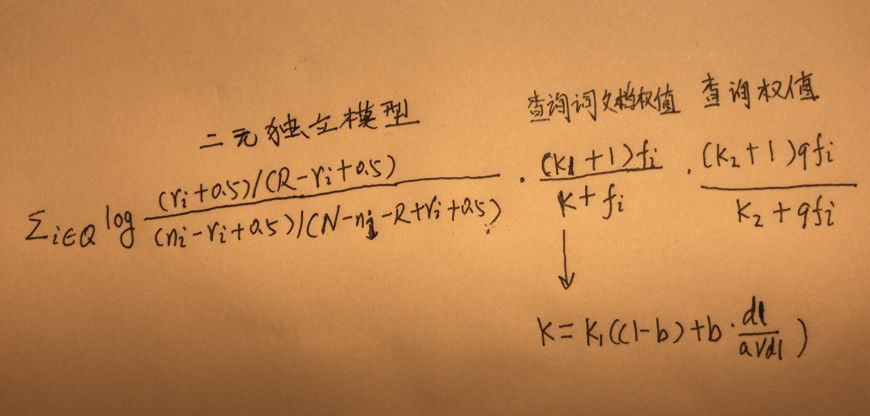 二元独立模型 查询词文档权值 查询权值
∑i∈Q log (ri+0.5)/(R-ri+0.5) / (ni-ri+0.5)/(N-ni-R+ri+0.5) · (k1+1)fi / K+fi · (k2+1)qfi / k2+qfi
K=k1((1-b)+b·dl/avdl)